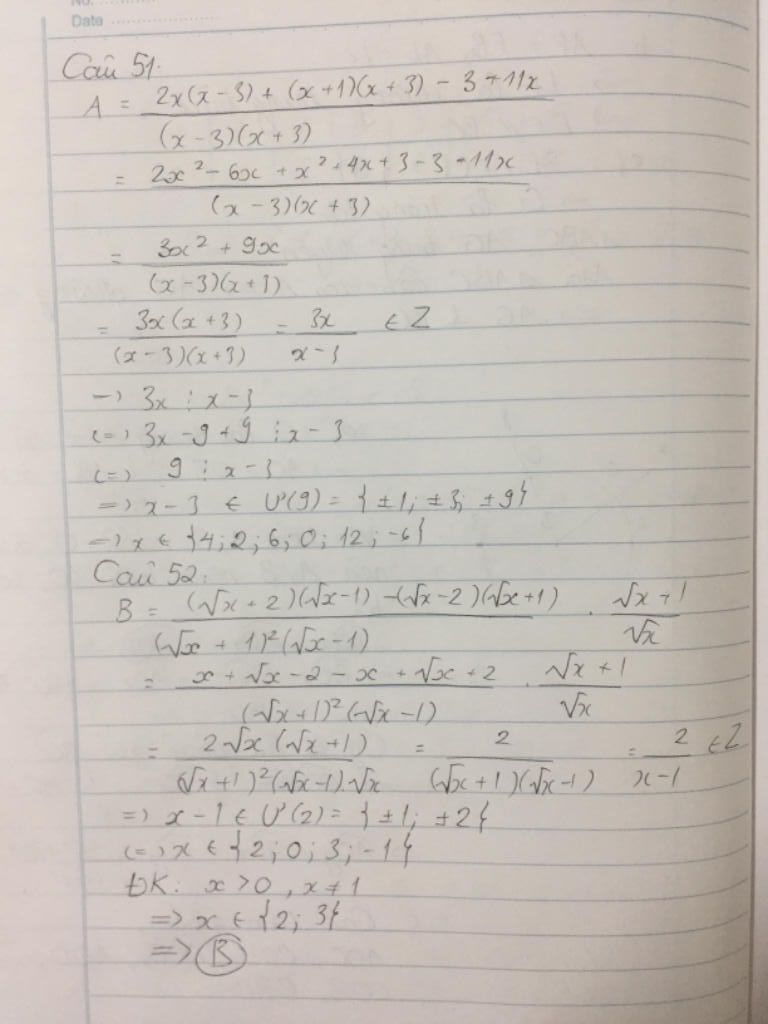 No.
Date
Câu 51:
A = \frac{2x(x-3) + (x+1)(x+3) - 3 + 11x}{(x-3)(x+3)}
= \frac{2x^2 - 6x + x^2 + 4x + 3 - 3 + 11x}{(x-3)(x+3)}
= \frac{3x^2 + 9x}{(x-3)(x+3)}
= \frac{3x(x+3)}{(x-3)(x+3)} = \frac{3x}{x-3} ∈ Z
=> 3x ⋮ x-3
<=> 3x - 9 + 9 ⋮ x-3
<=> 9 ⋮ x-3
=> x-3 ∈ Ư(9) = {±1; ±3; ±9}
=> x ∈ {4; 2; 6; 0; 12; -6}
Câu 52:
B = \frac{(√x+2)(√x-1) - (√x-2)(√x+1)}{(√x+1)^2(√x-1)} . \frac{√x+1}{√x}
= \frac{x+√x-2-x+√x+2}{(√x+1)^2(√x-1)} . \frac{√x+1}{√x}
= \frac{2√x(√x+1)}{(√x+1)^2(√x-1).√x} = \frac{2}{(√x+1)(√x-1)} = \frac{2}{x-1} ∈ Z
=> x-1 ∈ Ư(2) = {±1; ±2}
<=> x ∈ {2; 0; 3; -1}
ĐK: x > 0, x ≠ 1
=> x ∈ {2; 3}
=> B